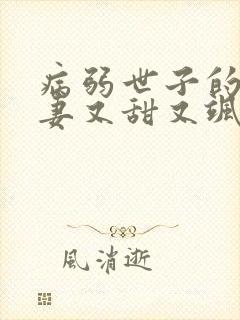 病弱世子的
妻又甜又飒
風消逝